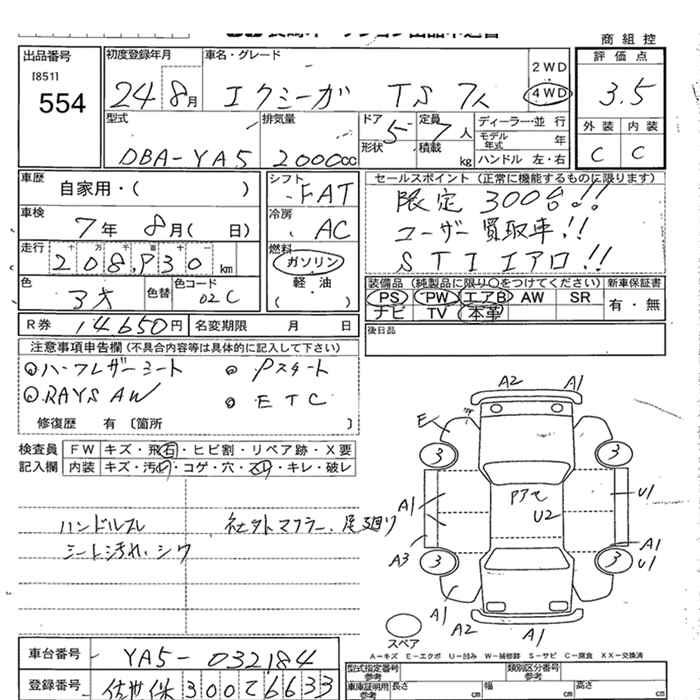 商 組 控
出品番号
[851]
554
初度登録年月
24年 8月
車名・グレード
エクシーガ TS 7人
2WD
4WD
評 価 点
3.5
外 装 内 装
C C
型式
DBA-YA5
排気量
2000cc
ドア 5
形状
定員 7人
積載 kg
ディーラー・並 行
モデル年式 年
ハンドル 左・右
車歴
自家用・( )
シフト
FAT
車検
7年 8月( 日)
冷房
AC
走行
十 万 千 百 十 一
km
燃料
ガソリン
軽・油
( )
色
色替
色コード
02C
R券 14650円
名変期限 月 日
セールスポイント (正常に機能するものに限ります)
限定 300台!!
ユーザー買取車!!
STI エアロ!!
装備品 (純製品に限り○をつけてください)
新車保証書
PS PW エアB AW SR
ナビ TV 本革
有・無
後日品
注意事項申告欄 (不具合内容等は具体的に記入して下さい)
ハーフレザーシート Pスタート
RAYS AW ETC
修復歴 有 〔箇所 〕
検査員
記入欄
FW キズ・飛石・ヒビ割・リペア跡・X要
内装 キズ・汚レ・コゲ・穴・スレ・キレ・破レ
ハンドルスレ 社外マフラー、尾廻り
シート汚れ、シワ
A2 A1
E
3 3
A1 U1
U2
A3 A1
3 3 U1
A1 A2 A1
スペア
A-キズ E-エクボ U-凹み W-補修跡 S-サビ C-腐食 XX-交換済
車台番号 YA5-032184
登録番号 佐世保300て6633
型式指定番号
参考
類別区分番号
参考
車庫証明用
参考
長さ cm
幅 cm
高さ cm